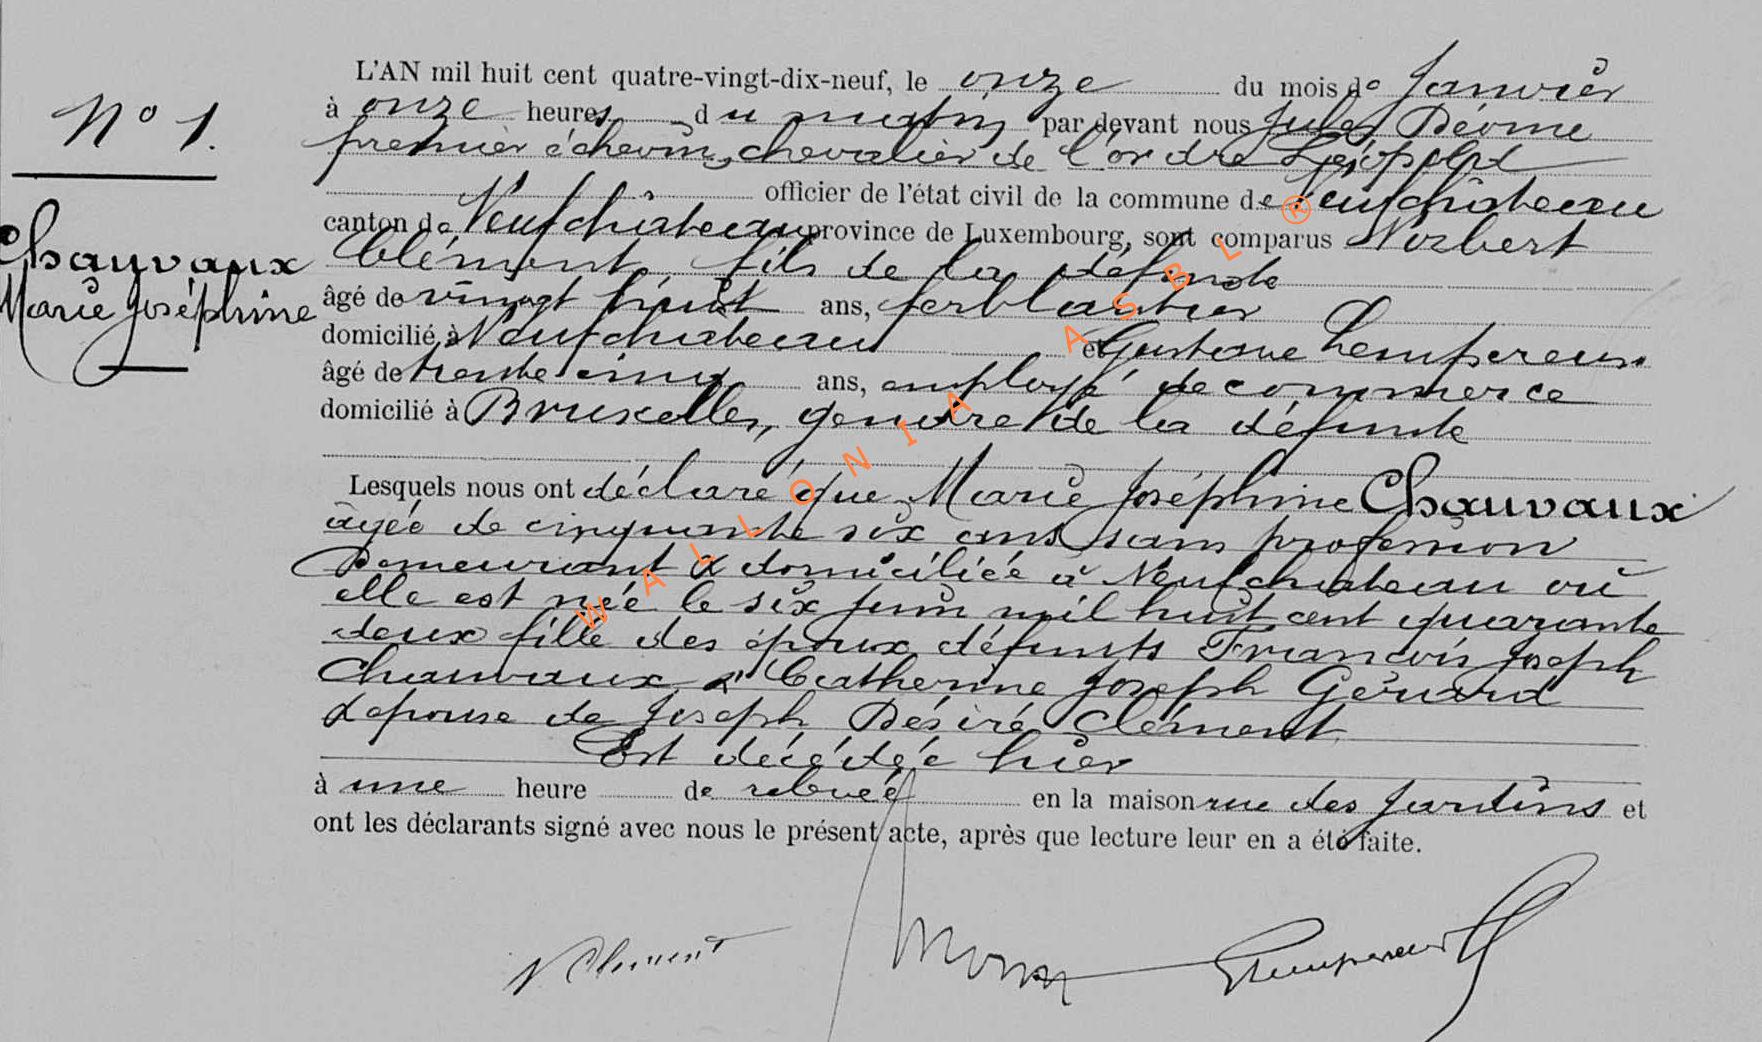 L'AN mil huit cent quatre-vingt-dix-neuf, le onze du mois de Janvier
N° 1.
à onze heures du matin par devant nous Jules Déome
premier échevin, chevalier de l'ordre Léopold
officier de l'état civil de la commune de Neufchâteau
canton de Neufchâteau province de Luxembourg, sont comparus Norbert
Chauvaux
Marie Joséphine
Clément, fils de la défunte
âgé de vingt huit ans, ferblantier
domicilié à Neufchateau et Gustave Lempereur
âgé de trente cinq ans, employé de commerce
domicilié à Bruxelles, gendre de la défunte
Lesquels nous ont déclaré que Marie Joséphine Chauvaux
âgée de cinquante six ans sans profession
Demeurant & domiciliée à Neufchateau où
elle est née le six juin mil huit cent quarante
deux fille des époux défunts François Joseph
Chauvaux & Catherine Joseph Gérard
épouse de Joseph Désiré Clément
Est décédée hier
à une heure de relevée en la maison rue des Jardins et
ont les déclarants signé avec nous le présent acte, après que lecture leur en a été faite.
N Clément
Lempereur
WALLONIA ASBL ®